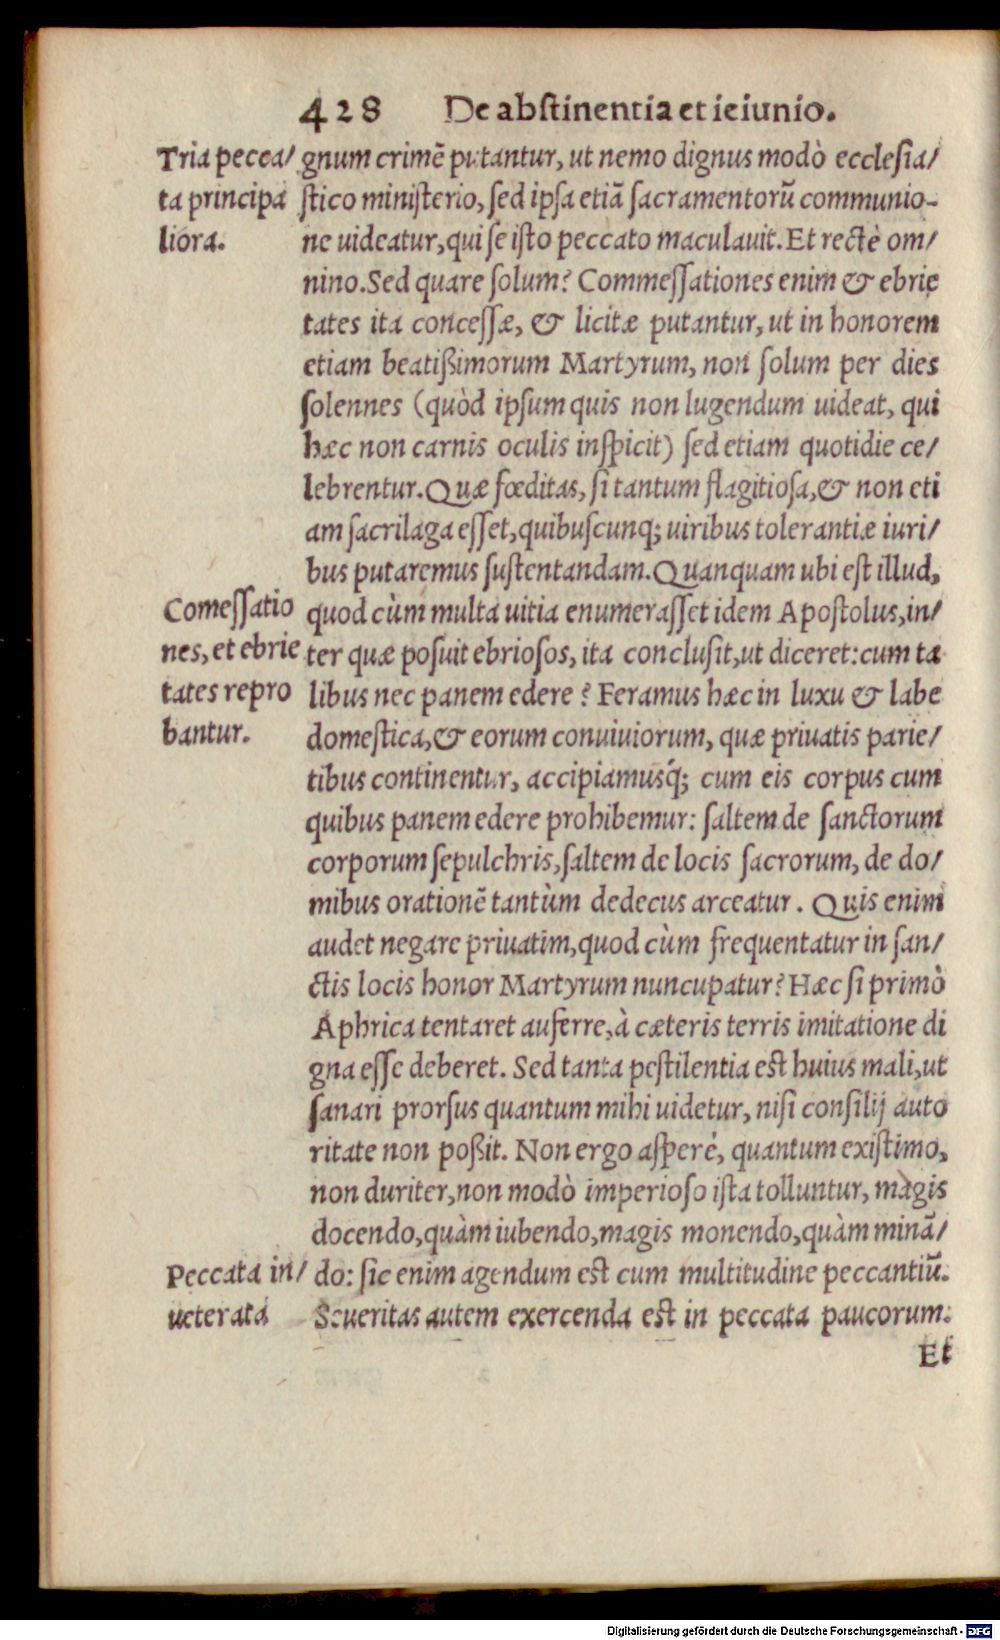 428 De abstinentia et ieiunio.
Tria pecca/
ta principa
liora.
gnum crimē putantur, ut nemo dignus modò ecclesia/
stico ministerio, sed ipsa etiā sacramentorū communio-
ne uideatur, qui se isto peccato maculauit. Et rectè om/
nino. Sed quare solum? Commessationes enim & ebrie
tates ita concessæ, & licitæ putantur, ut in honorem
etiam beatißimorum Martyrum, non solum per dies
solennes (quòd ipsum quis non lugendum uideat, qui
hæc non carnis oculis inspicit) sed etiam quotidie ce/
lebrentur. Quæ fœditas, si tantum flagitiosa, & non eti
am sacrilaga esset, quibuscunq; uiribus tolerantiæ iuri/
bus putaremus sustentandam. Quanquam ubi est illud,
Comessatio
nes, et ebrie
tates repro
bantur.
quod cùm multa uitia enumerasset idem Apostolus, in/
ter quæ posuit ebriosos, ita conclusit, ut diceret: cum ta
libus nec panem edere? Feramus hæc in luxu & labe
domestica, & eorum conuiuiorum, quæ priuatis parie/
tibus continentur, accipiamusq́; cum eis corpus cum
quibus panem edere prohibemur: saltem de sanctorum
corporum sepulchris, saltem de locis sacrorum, de do/
mibus orationē tantùm dedecus arceatur. Quis enim
audet negare priuatim, quod cùm frequentatur in san/
ctis locis honor Martyrum nuncupatur? Hæc si primò
Aphrica tentaret auferre, à cæteris terris imitatione di
gna esse deberet. Sed tanta pestilentia est huius mali, ut
sanari prorsus quantum mihi uidetur, nisi consilij auto
ritate non poßit. Non ergo asperè, quantum existimo,
non duriter, non modò imperioso ista tolluntur, màgis
docendo, quàm iubendo, magis monendo, quàm minā/
Peccata in/
ueterata
do: sic enim agendum est cum multitudine peccantiū.
Seueritas autem exercenda est in peccata paucorum:
Et
Digitalisierung gefördert durch die Deutsche Forschungsgemeinschaft - DFG